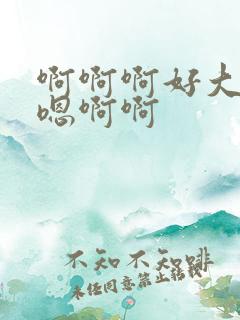 啊啊啊好大
嗯啊啊
不知不知啡
未经同意禁止转载